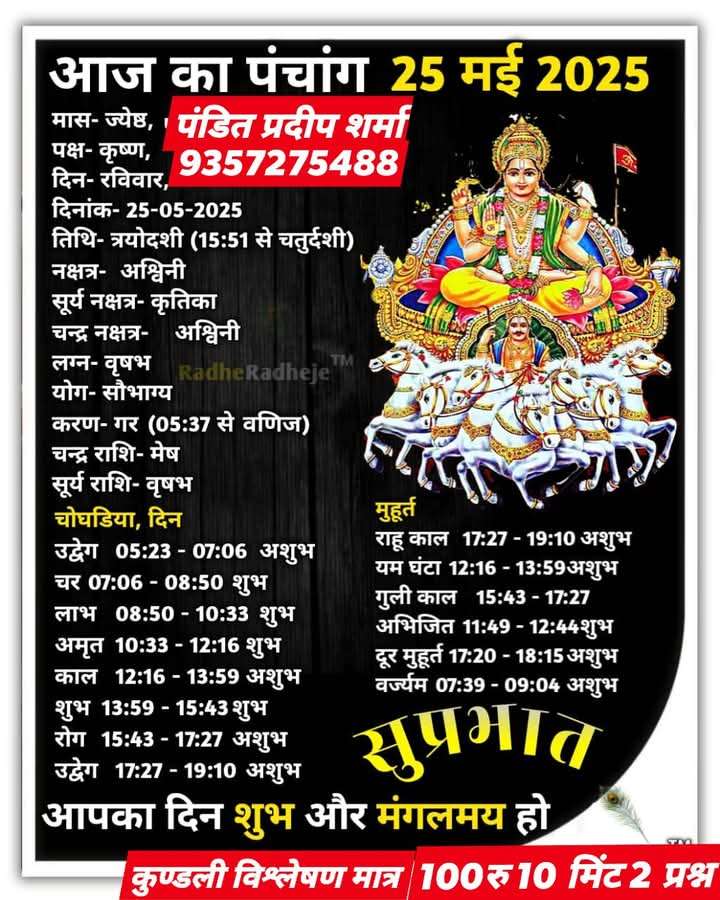 आज का पंचांग 25 मई 2025
मास- ज्येष्ठ,
पक्ष- कृष्ण,
दिन- रविवार,
पंडित प्रदीप शर्मा
9357275488
दिनांक- 25-05-2025
तिथि- त्रयोदशी (15:51 से चतुर्दशी)
नक्षत्र- अश्विनी
सूर्य नक्षत्र- कृतिका
चन्द्र नक्षत्र- अश्विनी
लग्न- वृषभ
RadheRadheje TM
योग- सौभाग्य
करण- गर (05:37 से वणिज)
चन्द्र राशि- मेष
सूर्य राशि- वृषभ
चोघडिया, दिन
उद्वेग 05:23 - 07:06 अशुभ
चर 07:06 - 08:50 शुभ
लाभ 08:50 - 10:33 शुभ
अमृत 10:33 - 12:16 शुभ
काल 12:16 - 13:59 अशुभ
शुभ 13:59 - 15:43 शुभ
रोग 15:43 - 17:27 अशुभ
उद्वेग 17:27 - 19:10 अशुभ
मुहूर्त
राहू काल 17:27 - 19:10 अशुभ
यम घंटा 12:16 - 13:59अशुभ
गुली काल 15:43 - 17:27
अभिजित 11:49 - 12:44शुभ
दूर मुहूर्त 17:20 - 18:15अशुभ
वर्ज्यम 07:39 - 09:04 अशुभ
सुप्रभात
आपका दिन शुभ और मंगलमय हो
कुण्डली विश्लेषण मात्र 100रु10 मिंट 2 प्रश्न